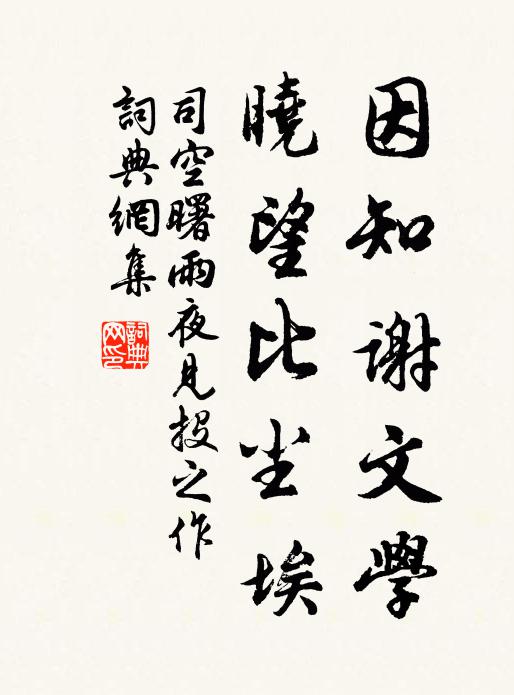 因知谢文學
曉望比尘埃
司空曙雨夜見投之作
詞典網集
詞典網印